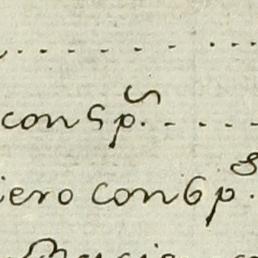 con 5 p.s
iero con 6 p.s